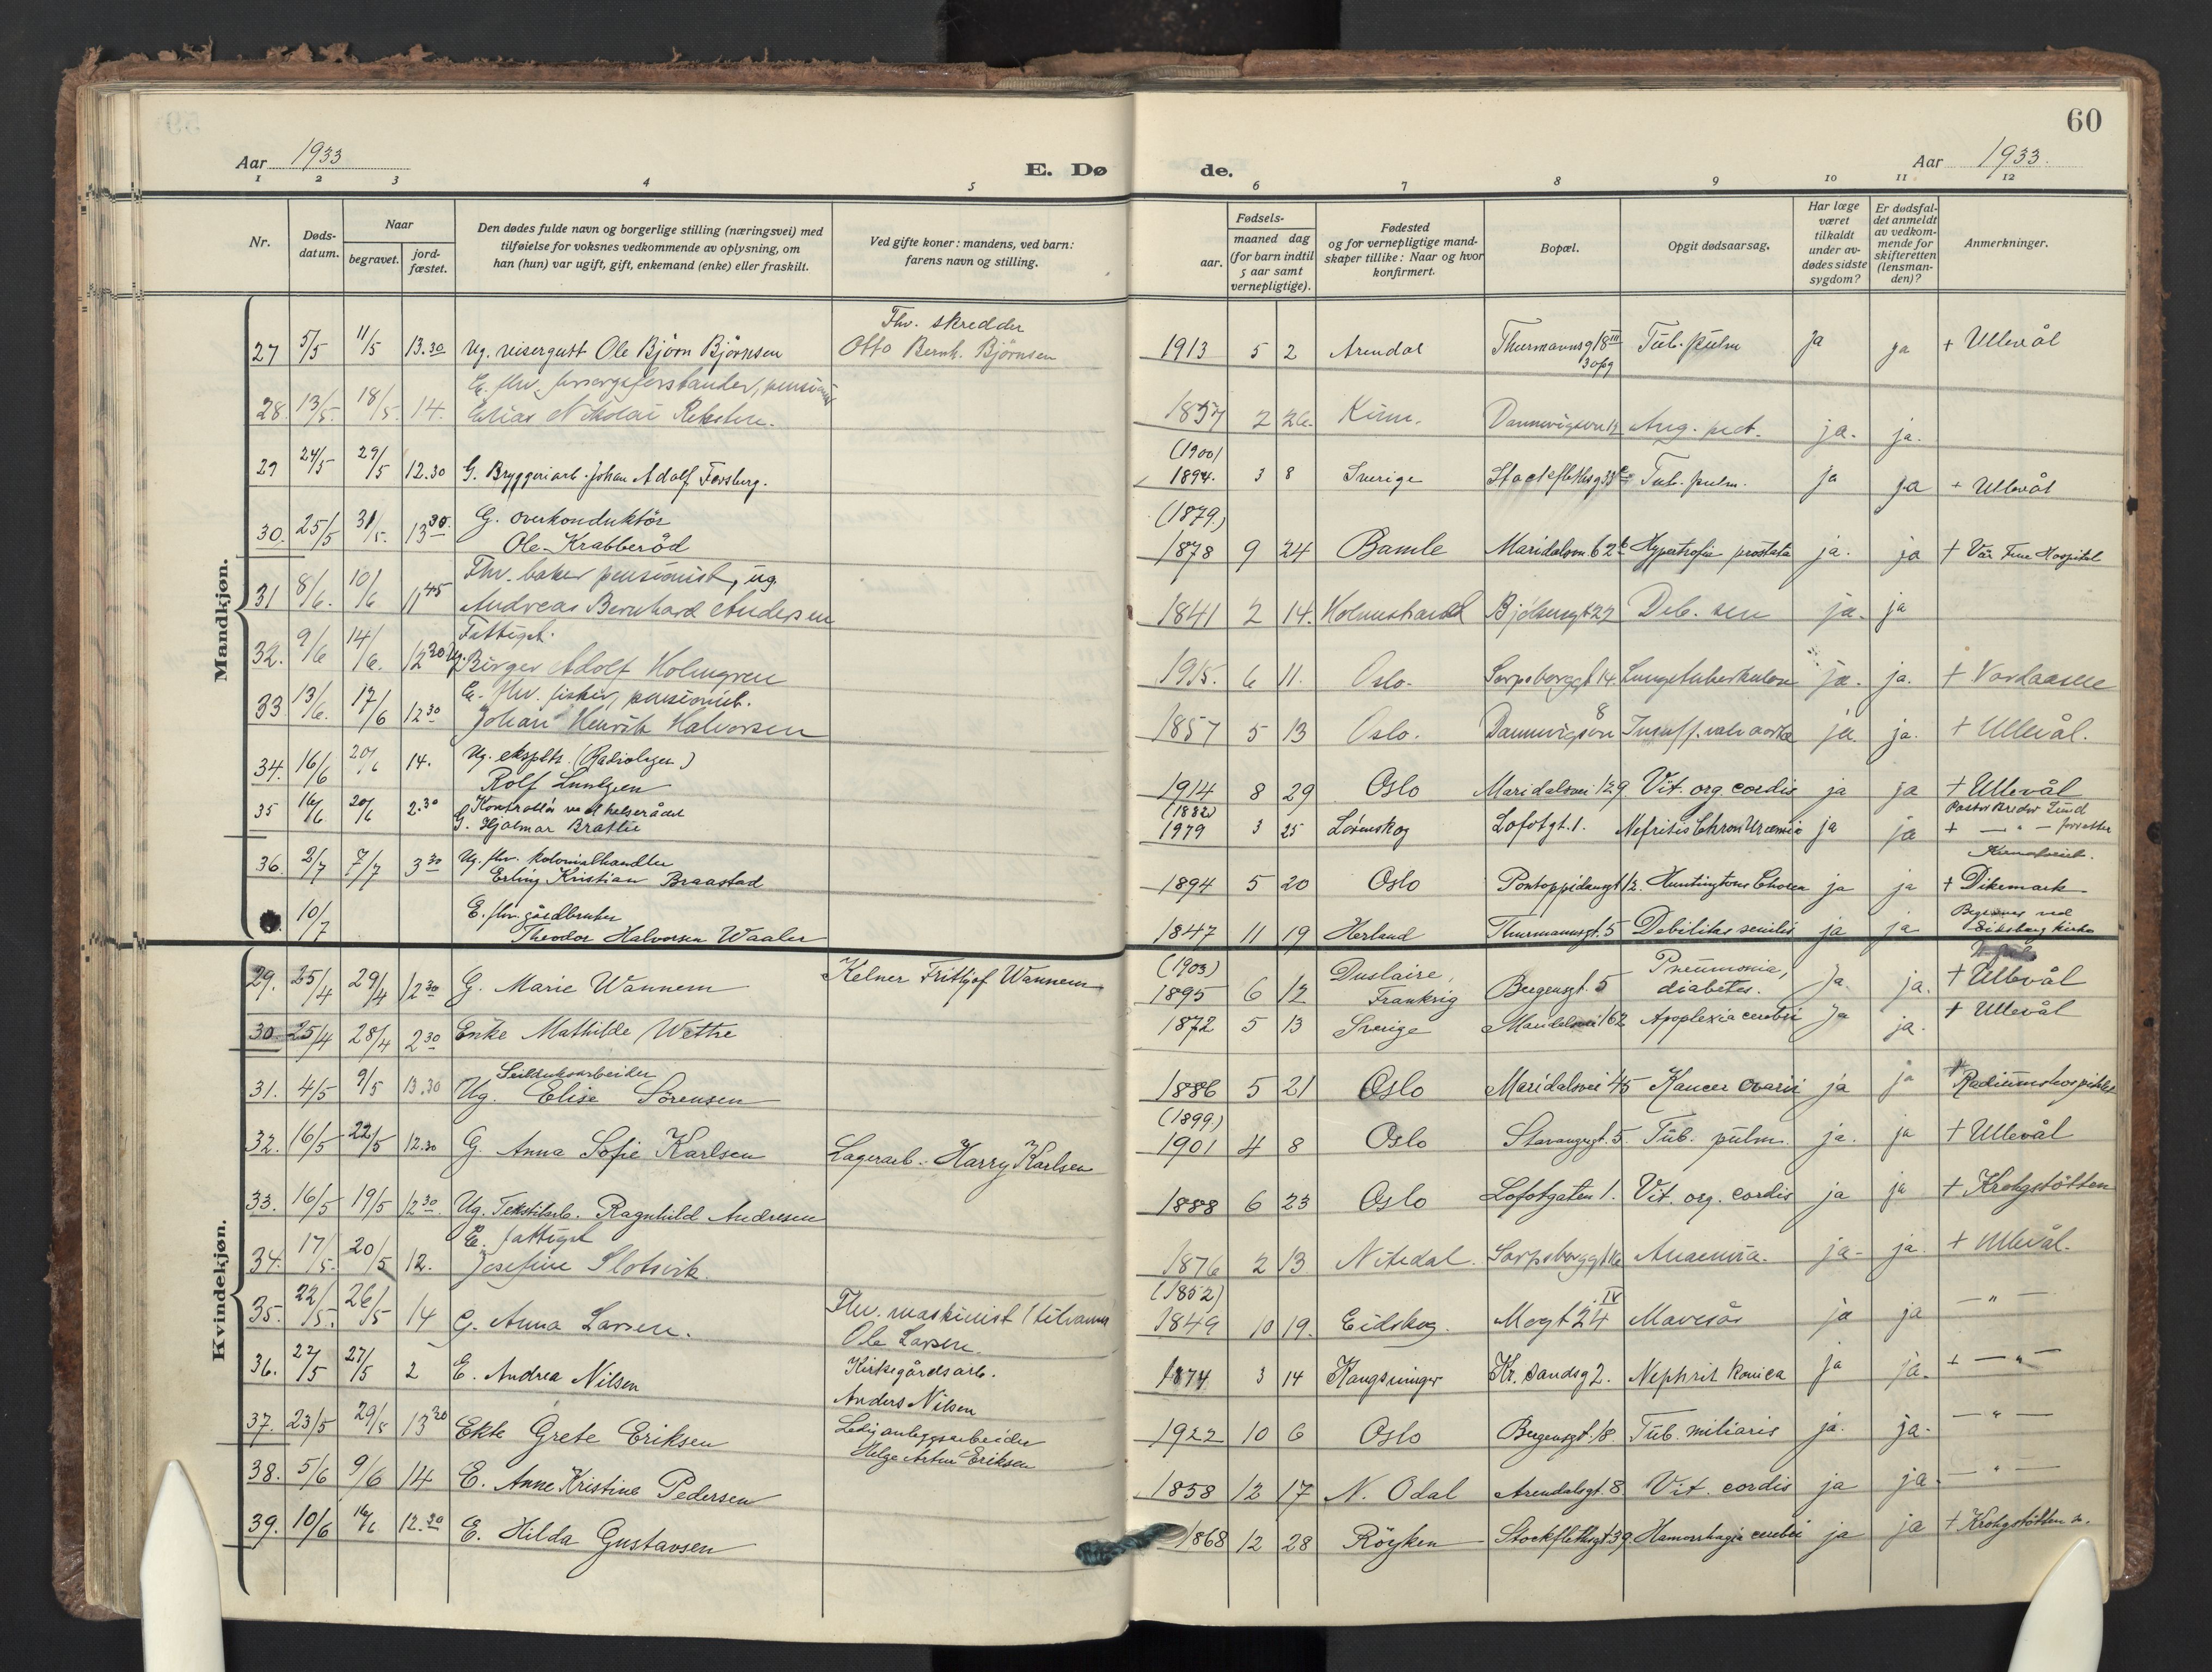 60
Aar 1933
E. Dø de.
Aar 1933.
1 2 3 4 5 6 7 8 9 10 11 12
Nr.
Døds-
datum.
Naar
begravet.
jord-
fæstet.
Den dødes fulde navn og borgerlige stilling (næringsvei) med
tilføielse for voksnes vedkommende av oplysning, om
han (hun) var ugift, gift, enkemand (enke) eller fraskilt.
Ved gifte koner: mandens, ved barn:
farens navn og stilling.
Fødsels-
aar.
maaned dag
(for barn indtil
5 aar samt
vernepligtige).
Fødested
og for vernepligtige mand-
skaper tillike: Naar og hvor
konfirmert.
Bopæl.
Opgit dødsaarsag.
Har læge
været
tilkaldt
under av-
dødes sidste
sygdom?
Er dødsfal-
det anmeldt
av vedkom-
mende for
skifteretten
(lensman-
den)?
Anmerkninger.
Mandkjøn.
Thv. skredder
27 5/5 11/5 13.30 Ug. visergutt Ole Bjørn Bjørnsen Otto Bernh. Bjørnsen 1913 5 2 Arendal Thurmannsg 18 III Tub. pulm ja ja + Ullevål
3 opg
E. fhv.
28. 13/5. 18/5. 14. Elias Nikolai Reksten. 1857 2 26. Kinn. Ang. pect. ja. ja.
(1900)
29 24/5 29/5 12.30 G. Bryggeriarb. Johan Adolf Forsberg. 1894. 3 8 Sverige Stockflethsg 33 Tub. pulm. ja ja + Ullevål
G. overkonduktör (1879.)
30. 25/5 31/5. 13 30. Ole Krabberöd 1878 9 24 Bamle Maridalsv. 62 b Hypertrofia prostata ja. ja + Vår Frue Hospital
Fhv. baker pensionist, ug.
31 8/6. 10/6 11 45 Andreas Bernhard Andersen 1841 2 14. Holmestrand Bjölsengt 22 Deb. sen ja. ja
Fattigst.
32. 9/6 14/6. 12 30 Ug. Birger Adolf Holmgren 1915. 6 11. Oslo. Sarpsborggt 14. Lungetuberkulose ja. ja. + Vardaasen
E. fhv. fisker, pensionist.
33 13/6. 17/6 12 30 Johan Henrik Halvorsen 1857 5 13 Oslo. Dannevigsvn 8 Insuff. valv aortae ja. ja. + Ullevål.
Ug. ekspltr. (Radiolager)
34. 16/6 20/6 14. Rolf Lundgren 1914 8 29 Oslo Maridalsvei 129. Vit. org. cordis ja ja + Ullevål
Kontrollör ved helserådet (1882) Pastor Bredor Lind
35 16/6 20/6 2.30 G. Hjalmar Brattli 1979 3 25 Lörenskog Lofotgt. 1. Nefritis Chron Uræmia ja ja + — " — forretter
Krematoriet.
Ug. fhv. kolonialhandler
36. 2/7 7/7 3 30 Erling Kristian Braastad 1894 5 20 Oslo Pontoppidansgt 12. Huntingtons Chorea ja ja + Dikemark
E. fhv. gårdbruker Begraves ved
10/7 Theodor Halvorsen Waaler 1847 11 19 Herland Thurmannsgt. 5 Debilitas senilis ja ja Eidsberg kirke
Kvindekjøn.
(1903) Duslaire, Pneumonia,
29. 25/4 29/4 12 30 G. Marie Wannem Kelner Frithjof Wannem 1895 6 12 Frankrig Bergensgt. 5 diabetes. ja. ja. + Ullevål
30. 25/4 28/4 2 30 Enke Mathilde Wettre 1872 5 13 Sverige Maridalsvei 162 Apoplexia cerebri ja ja. + Ullevål
Seilduksarbeider
31. 4/5 9/5 13.30 Ug. Elise Sörensen 1886 5 21 Oslo Maridalsvei 45 Kancer ovarii ja ja + Radiumshospitalet
(1899)
32. 16/5 22/5 12.30 G. Anna Sofie Karlsen Lagerarb. Harry Karlsen 1901 4 8 Oslo Stavangergt. 5. Tub. pulm. ja. ja + Ullevål
33. 16/5 19/5 12 30. Ug. Tekstilarb. Ragnhild Andresen 1888 6 23 Oslo Lofotgaten 1. Vit. org. cordis ja ja + Krohgstötten
E. fattigst
34. 17/5. 20/5 12. Josefine Slotsvik. 1876 2 13 Nitedal. Sarpsborggt 16 Anaemia. ja- ja + Ullevål.
Fhv. maskinist (1852)
35. 22/5. 26/5 14 G. Anna Larsen. Ole Larsen. 1849 10 19. Eidskog. Mogt 24 IV Mavesår ja ja — " —
Kirkegårdsarb.
36. 22/5 27/5 2 E. Andrea Nilsen Anders Nilsen 1874 3 14 Kongsvinger Kr. sandsg 2. Nephrit kronica ja ja. + — " —
Ledig anleggsarbeider
37. 23/5 29/5 13 30 Ekte Grete Eriksen Helge Artur Eriksen 1922 10 6 Oslo Bergensgt. 18. Tub. miliaris ja. ja. — " —
38. 5/6 9/6 14 E. Anne Kristine Pedersen 1858 12 17 N. Odal Arendalsgt. 8. Vit. cordis ja ja. — " —
39. 10/6 16/6 12.30 E. Hilda Gustavsen 1868 12 28 Röyken Stockflethsgt 39. Hæmorrhagia cerebri ja ja + Krohgstötten s.